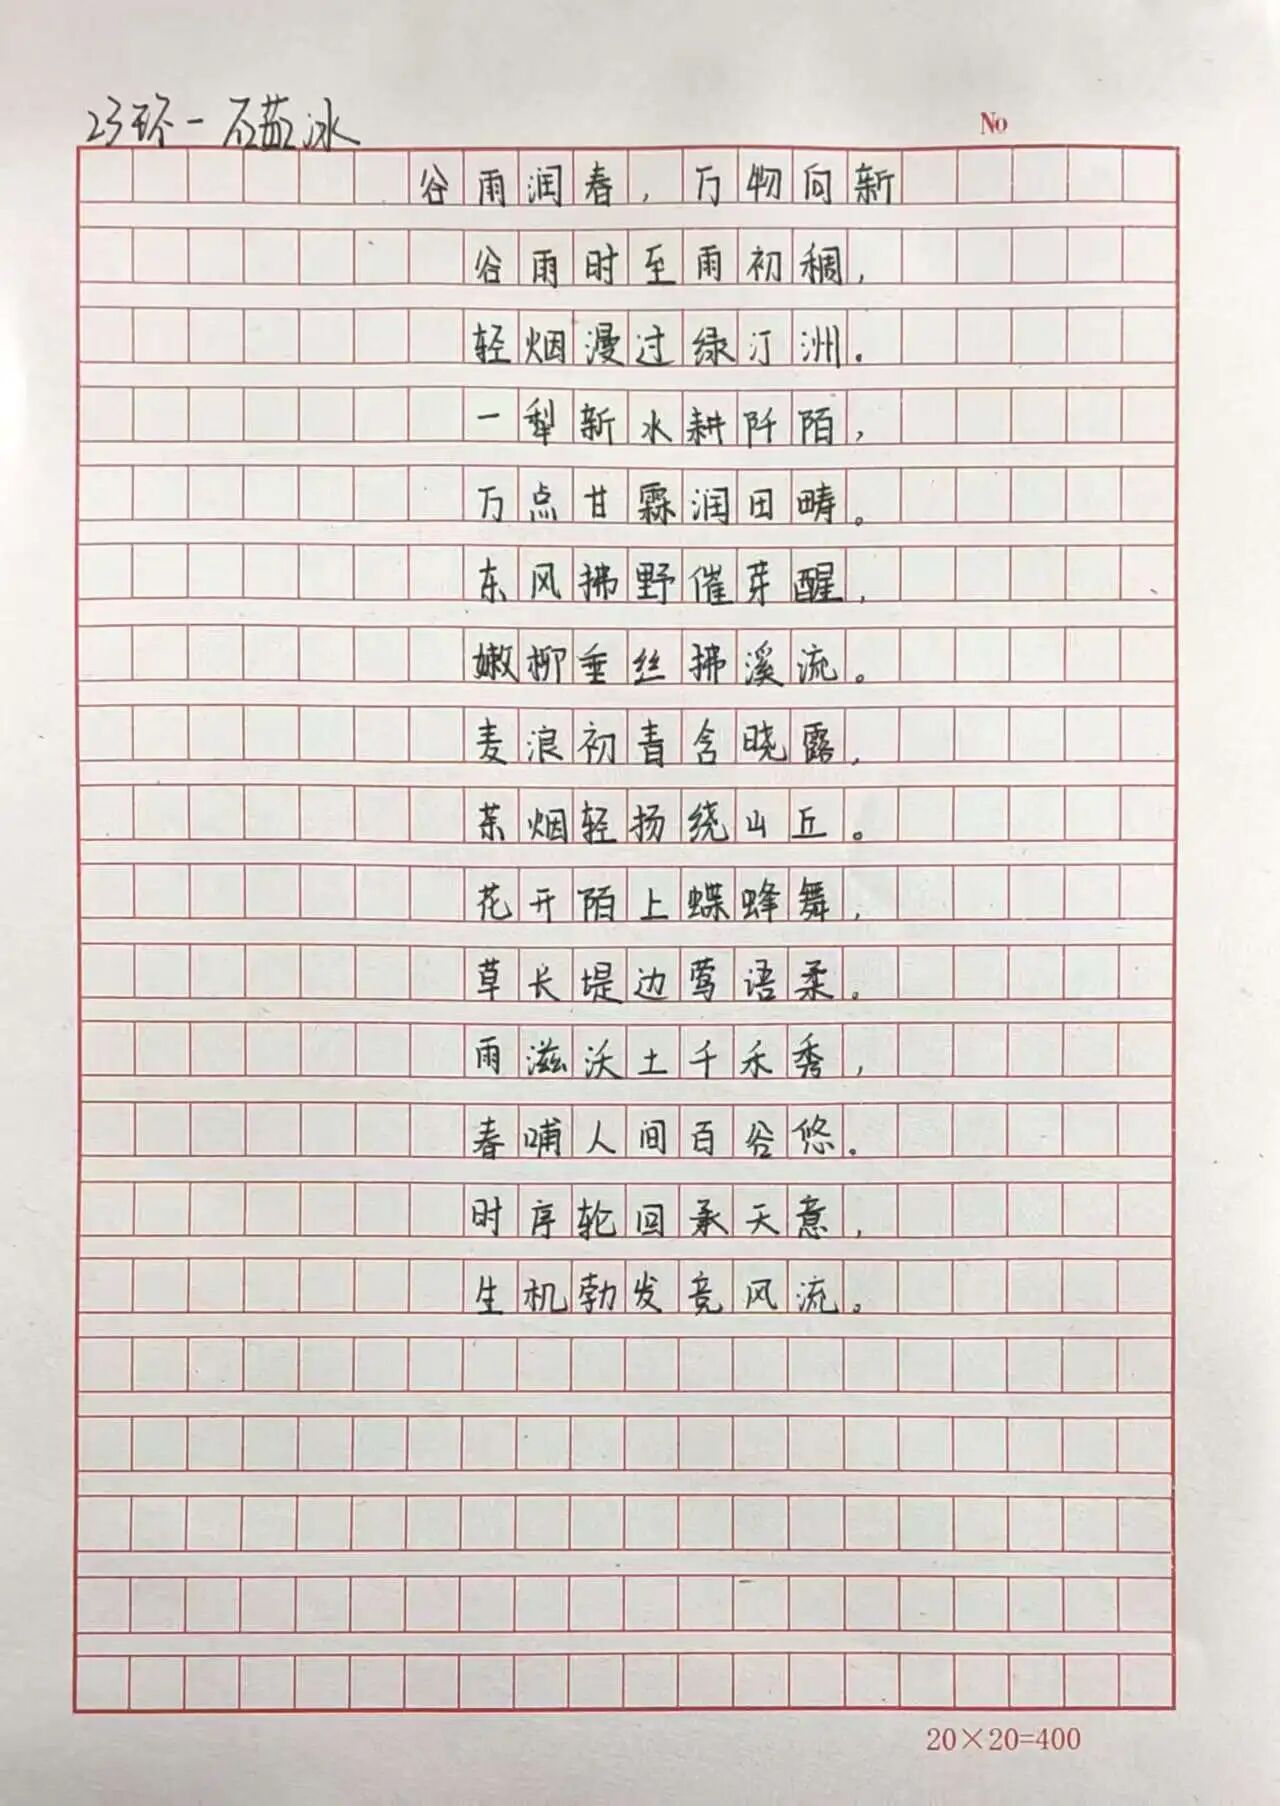 23环一 石蓝冰
No
谷雨润春，万物向新
谷雨时至雨初稠，
轻烟漫过绿汀洲。
一犁新水耕阡陌，
万点甘霖润田畴。
东风拂野催芽醒，
嫩柳垂丝拂溪流。
麦浪初青含晓露，
茶烟轻扬绕山丘。
花开陌上蝶蜂舞，
草长堤边莺语柔。
雨滋沃土千禾秀，
春哺人间百谷悠。
时序轮回承天意，
生机勃发竞风流。
20×20=400